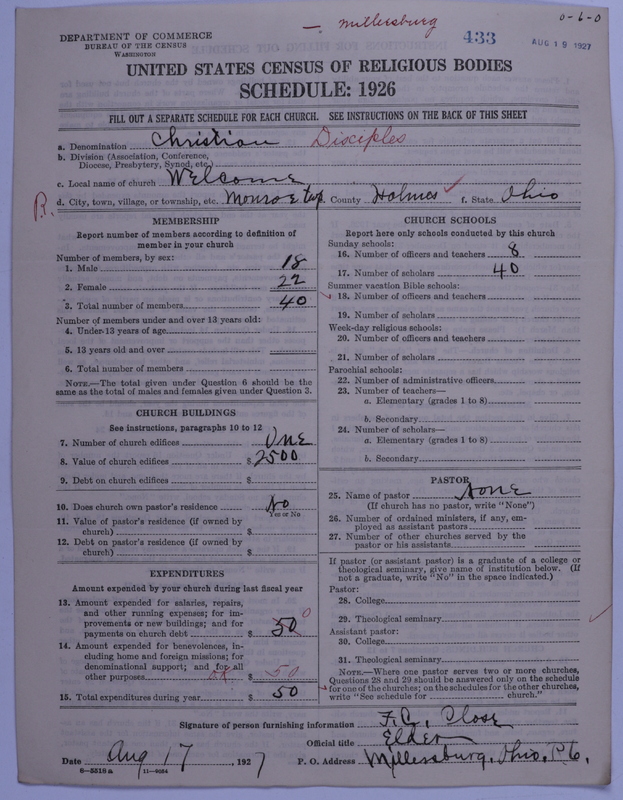 — Millersburg
0-6-0
433
AUG 19 1927
DEPARTMENT OF COMMERCE
BUREAU OF THE CENSUS
WASHINGTON
UNITED STATES CENSUS OF RELIGIOUS BODIES
SCHEDULE: 1926
FILL OUT A SEPARATE SCHEDULE FOR EACH CHURCH. SEE INSTRUCTIONS ON THE BACK OF THIS SHEET
a. Denomination Christian Disciples
b. Division (Association, Conference,
Diocese, Presbytery, Synod, etc.)
c. Local name of church Welcome
d. City, town, village, or township, etc. Monroe twp. County Holmes f. State Ohio
MEMBERSHIP
Report number of members according to definition of
member in your church
Number of members, by sex:
1. Male 18
2. Female 22
3. Total number of members 40
Number of members under and over 13 years old:
4. Under 13 years of age
5. 13 years old and over
6. Total number of members
NOTE.—The total given under Question 6 should be the
same as the total of males and females given under Question 3.
CHURCH BUILDINGS
See instructions, paragraphs 10 to 12
7. Number of church edifices One
8. Value of church edifices $ 2500
9. Debt on church edifices $
10. Does church own pastor's residence No
Yes or No
11. Value of pastor's residence (if owned by
church) $
12. Debt on pastor's residence (if owned by
church) $
EXPENDITURES
Amount expended by your church during last fiscal year
13. Amount expended for salaries, repairs,
and other running expenses; for im-
provements or new buildings; and for
payments on church debt $ 50 0
14. Amount expended for benevolences, in-
cluding home and foreign missions; for
denominational support; and for all
other purposes OK $ 50
15. Total expenditures during year $ 50
CHURCH SCHOOLS
Report here only schools conducted by this church
Sunday schools:
16. Number of officers and teachers 8
17. Number of scholars 40
Summer vacation Bible schools:
18. Number of officers and teachers
19. Number of scholars
Week-day religious schools:
20. Number of officers and teachers
21. Number of scholars
Parochial schools:
22. Number of administrative officers
23. Number of teachers—
a. Elementary (grades 1 to 8)
b. Secondary
24. Number of scholars—
a. Elementary (grades 1 to 8)
b. Secondary
PASTOR
25. Name of pastor None
(If church has no pastor, write "None")
26. Number of ordained ministers, if any, em-
ployed as assistant pastors
27. Number of other churches served by the
pastor or his assistants
If pastor (or assistant pastor) is a graduate of a college or
theological seminary, give name of institution below. (If
not a graduate, write "No" in the space indicated.)
Pastor:
28. College
29. Theological seminary
Assistant pastor:
30. College
31. Theological seminary
NOTE.—Where one pastor serves two or more churches,
Questions 28 and 29 should be answered only on the schedule
for one of the churches; on the schedules for the other churches,
write "See schedule for church."
Signature of person furnishing information F. C. Close
Official title Elder
Date Aug 17, 1927 P. O. Address Millersburg, Ohio,
8-5518a 11-9054